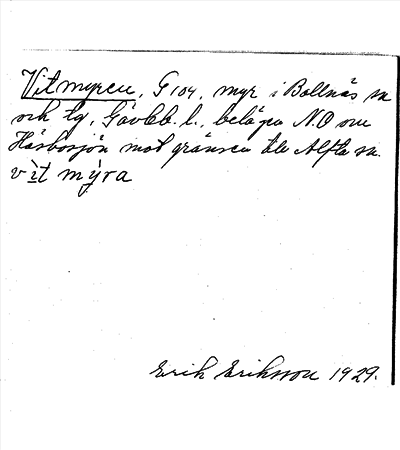 Vitmyren, G 104, myr i Bollnäs sn
och tg, Gävleb. l., belägen N.O om
Håsbosjön mot gränsen till Alfta sn.
vìt mỳra
Erik Eriksson 1929.